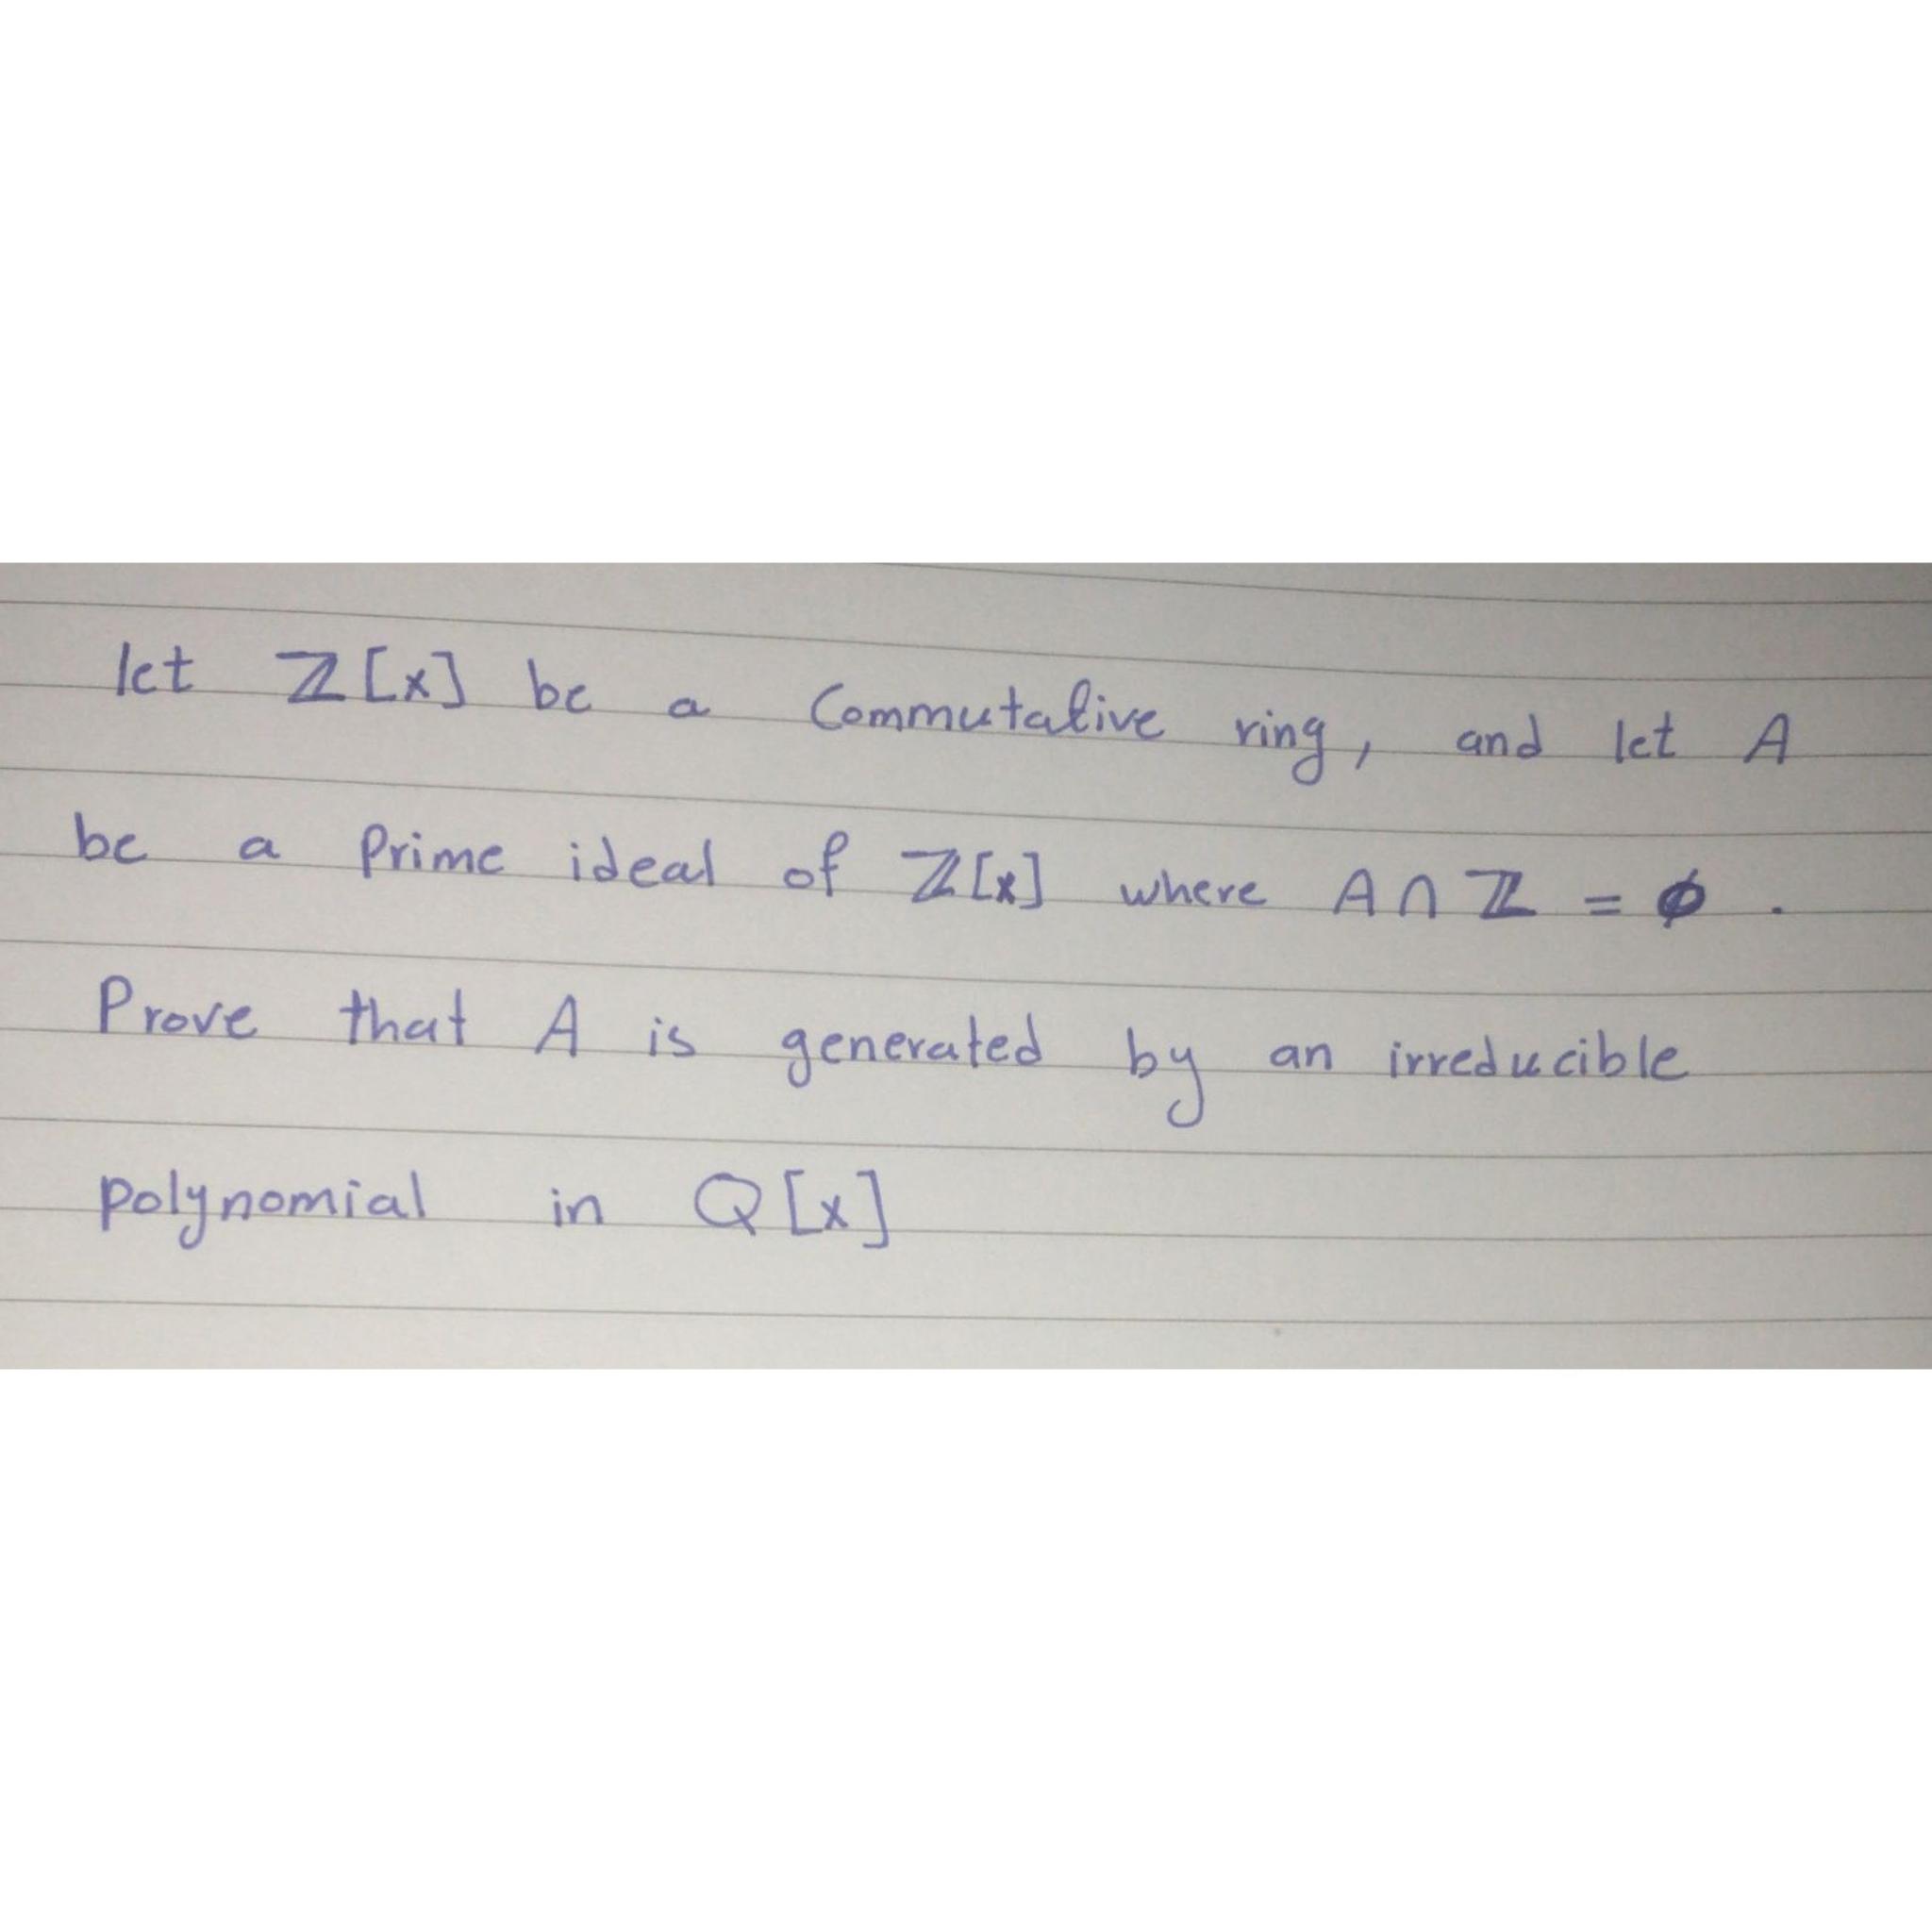 let ℤ[x] be a Commutative ring, and let A
be a Prime ideal of ℤ[x] where A ∩ ℤ = ϕ .
Prove that A is generated by an irreducible
polynomial in Q[x]